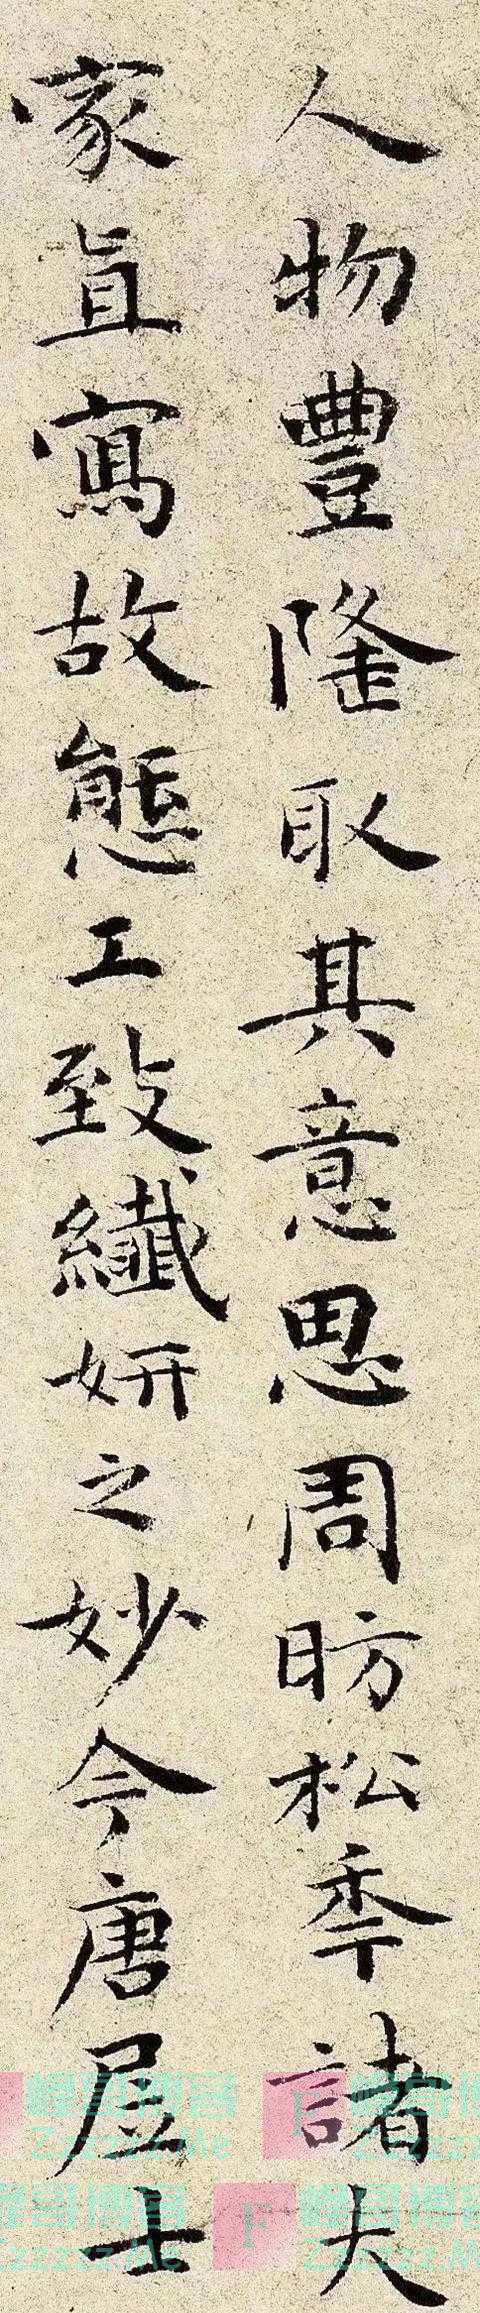 人物豐隆取其意思周昉松年諸大
家眞寫故態工致纖妍之妙今唐居士